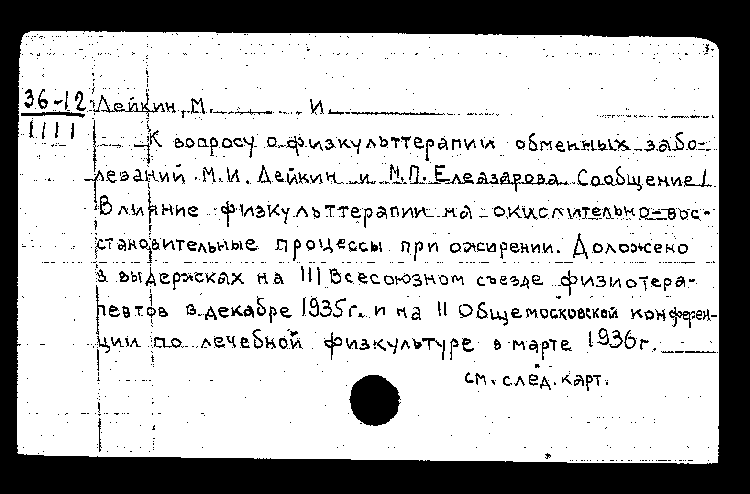 36-12 Лейкин, М. И.
1111
К вопросу о физкульттерапии обменных забо-
леваний М.И. Лейкин и М.П. Елеазарова. Сообщение I
Влияние физкульттерапии на окислительно-вос-
становительные процессы при ожирении. Доложено
в выдержках на III Всесоюзном съезде физиотера-
певтов в декабре 1935г. и на II Общемосковской конферен-
ции по лечебной физкультуре в марте 1936г.
см. след. карт.